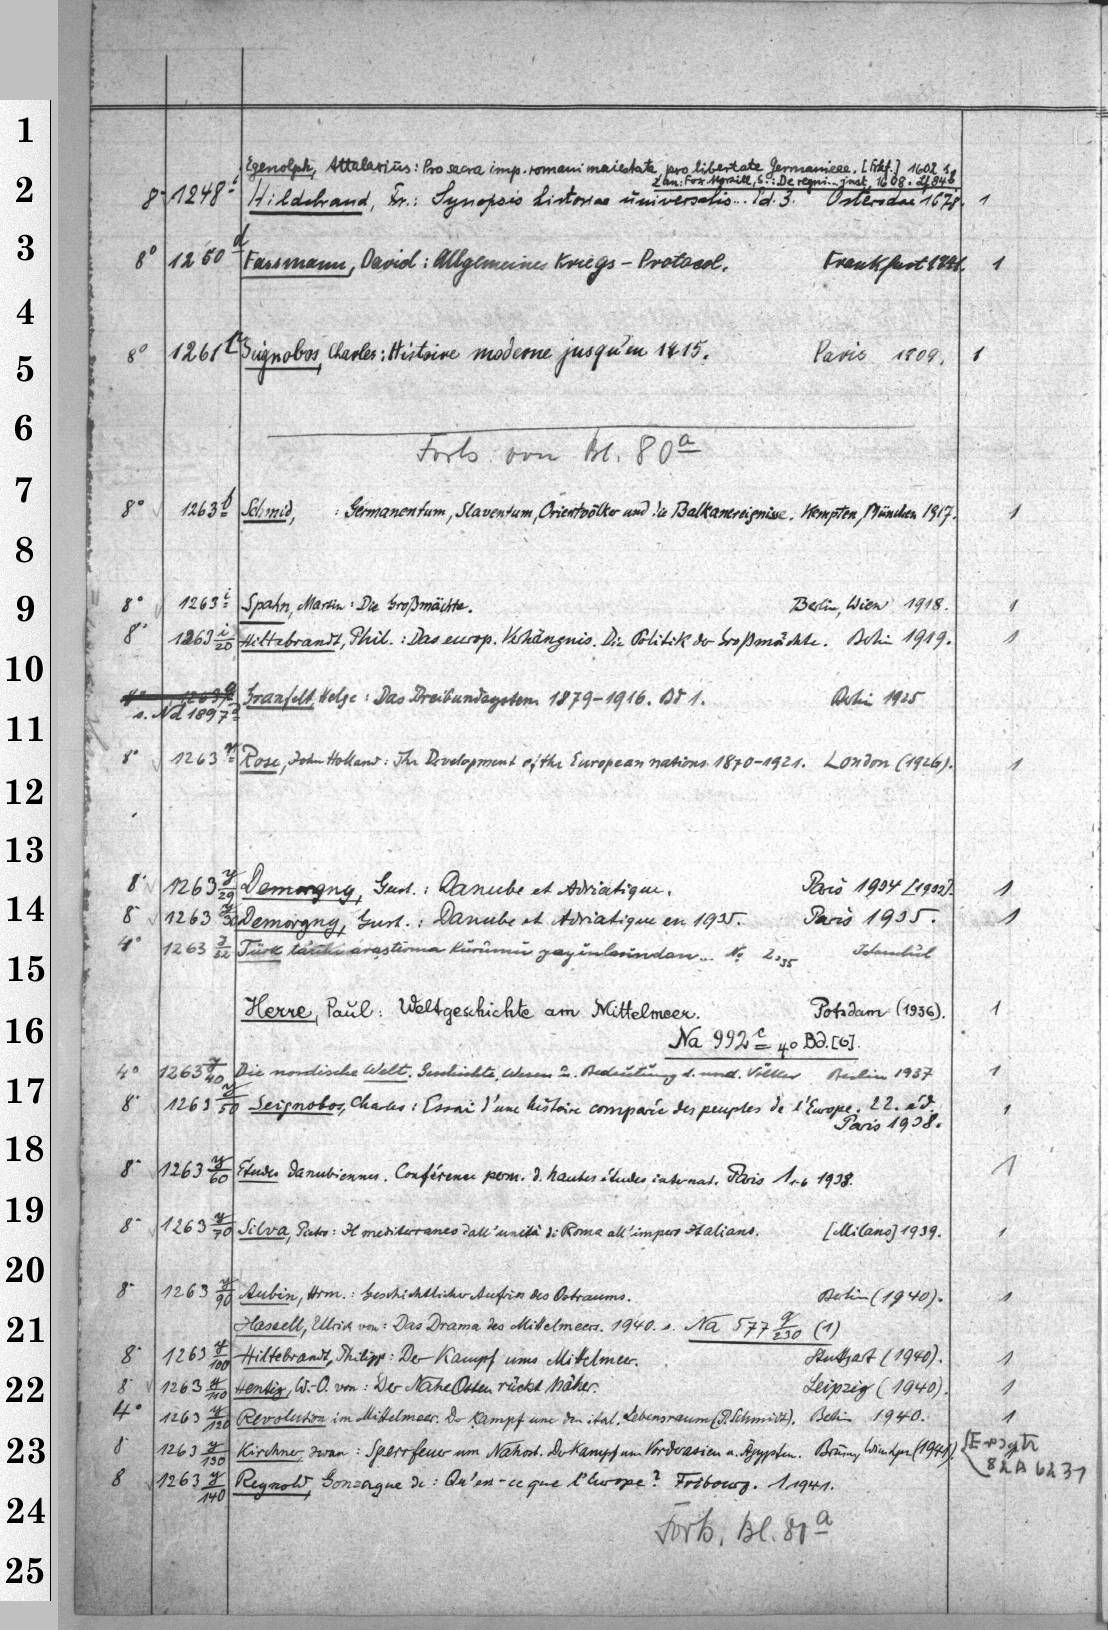 1
2
3
4
5
6
7
8
9
10
11
12
13
14
15
16
17
18
19
20
21
22
23
24
25
Egenolph, Attalarius: Pro sacra imp. romani maiestate, pro libertate Germanicae. [Frkf.] 1602
8° 1248 Hildebrand, Fr.: Synopsis historiae universalis... Ed. 3. 1678. 1
8° 1260 d Fassmann, David: Allgemeines Kriegs-Protocol. Frankfurt 1
8° 1261 Seignobos, Charles: Histoire moderne jusqu'en 1715. Paris 1909. 1
Forts. von Bl. 80 a
8° 1263 h Schmid, : Germanentum, Slaventum, Orientvölker und die Balkanereignisse. Kempten, München 1917. 1
8° 1263 i Spahn, Martin: Die Großmächte. Berlin, Wien 1918. 1
8° 1263 i/20 Hiltebrandt, Phil.: Das europ. Verhängnis. Die Politik der Großmächte. Berlin 1919. 1
Granfelt, Helge: Das Dreibundsystem 1879-1916. Bd 1. Berlin 1925
s. Nd 1897
8° 1263 Rose, John Holland: The Development of the European nations 1870-1921. London (1926). 1
8° 1263 y/29 Demorgny, Gust.: Danube et Adriatique. Paris 1934 [1932]. 1
8° 1263 y/30 Demorgny, Gust.: Danube et Adriatique en 1935. Paris 1935. 1
4° 1263 y/32 Türk tarihi araştirma kurumu yayinlarindan... Istanbul
Herre, Paul: Weltgeschichte am Mittelmeer. Potsdam (1936). 1
Na 992 c 4° Bd. [6].
4° 1263 y/40 Die nordische Welt. Geschichte, Wesen u. Bedeutung d. nord. Völker Berlin 1937 1
8° 1263 y/50 Seignobos, Charles: Essai d'une histoire comparée des peuples de l'Europe. 22. éd.
Paris 1938. 1
8° 1263 y/60 Etudes danubiennes. Conférence perm. d. hautes études internat. Paris 1938. 1
8° 1263 y/70 Silva, Pietro: Il mediterraneo dall' unità di Roma all' impero Italiano. [Milano] 1939. 1
8° 1263 y/90 Aubin, Hrm.: Geschichtlicher Aufriss des Ostraums. Berlin (1940). 1
Hassell, Ulrich von: Das Drama des Mittelmeers. 1940. s. Na 577 q/230 (1)
8° 1263 y/100 Hiltebrandt, Philipp: Der Kampf ums Mittelmeer. Stuttgart (1940). 1
8° 1263 y/110 Hentig, W.-O. von: Der Nahe Osten rückt näher. Leipzig (1940). 1
4° 1263 y/120 Revolution im Mittelmeer. Der Kampf um den ital. Lebensraum (P. Schmidt). Berlin 1940. 1
8° 1263 y/130 Kirchner, Iwan: Sperrfeuer um Nahost. Der Kampf um Vorderasien u. Ägypten. Brünn, (1941).
8 1263 y/140 Reynold, Gonzague de: Qu'est-ce que l'Europe? Fribourg. 1941.
82 A 6231
Forts. Bl. 81 a